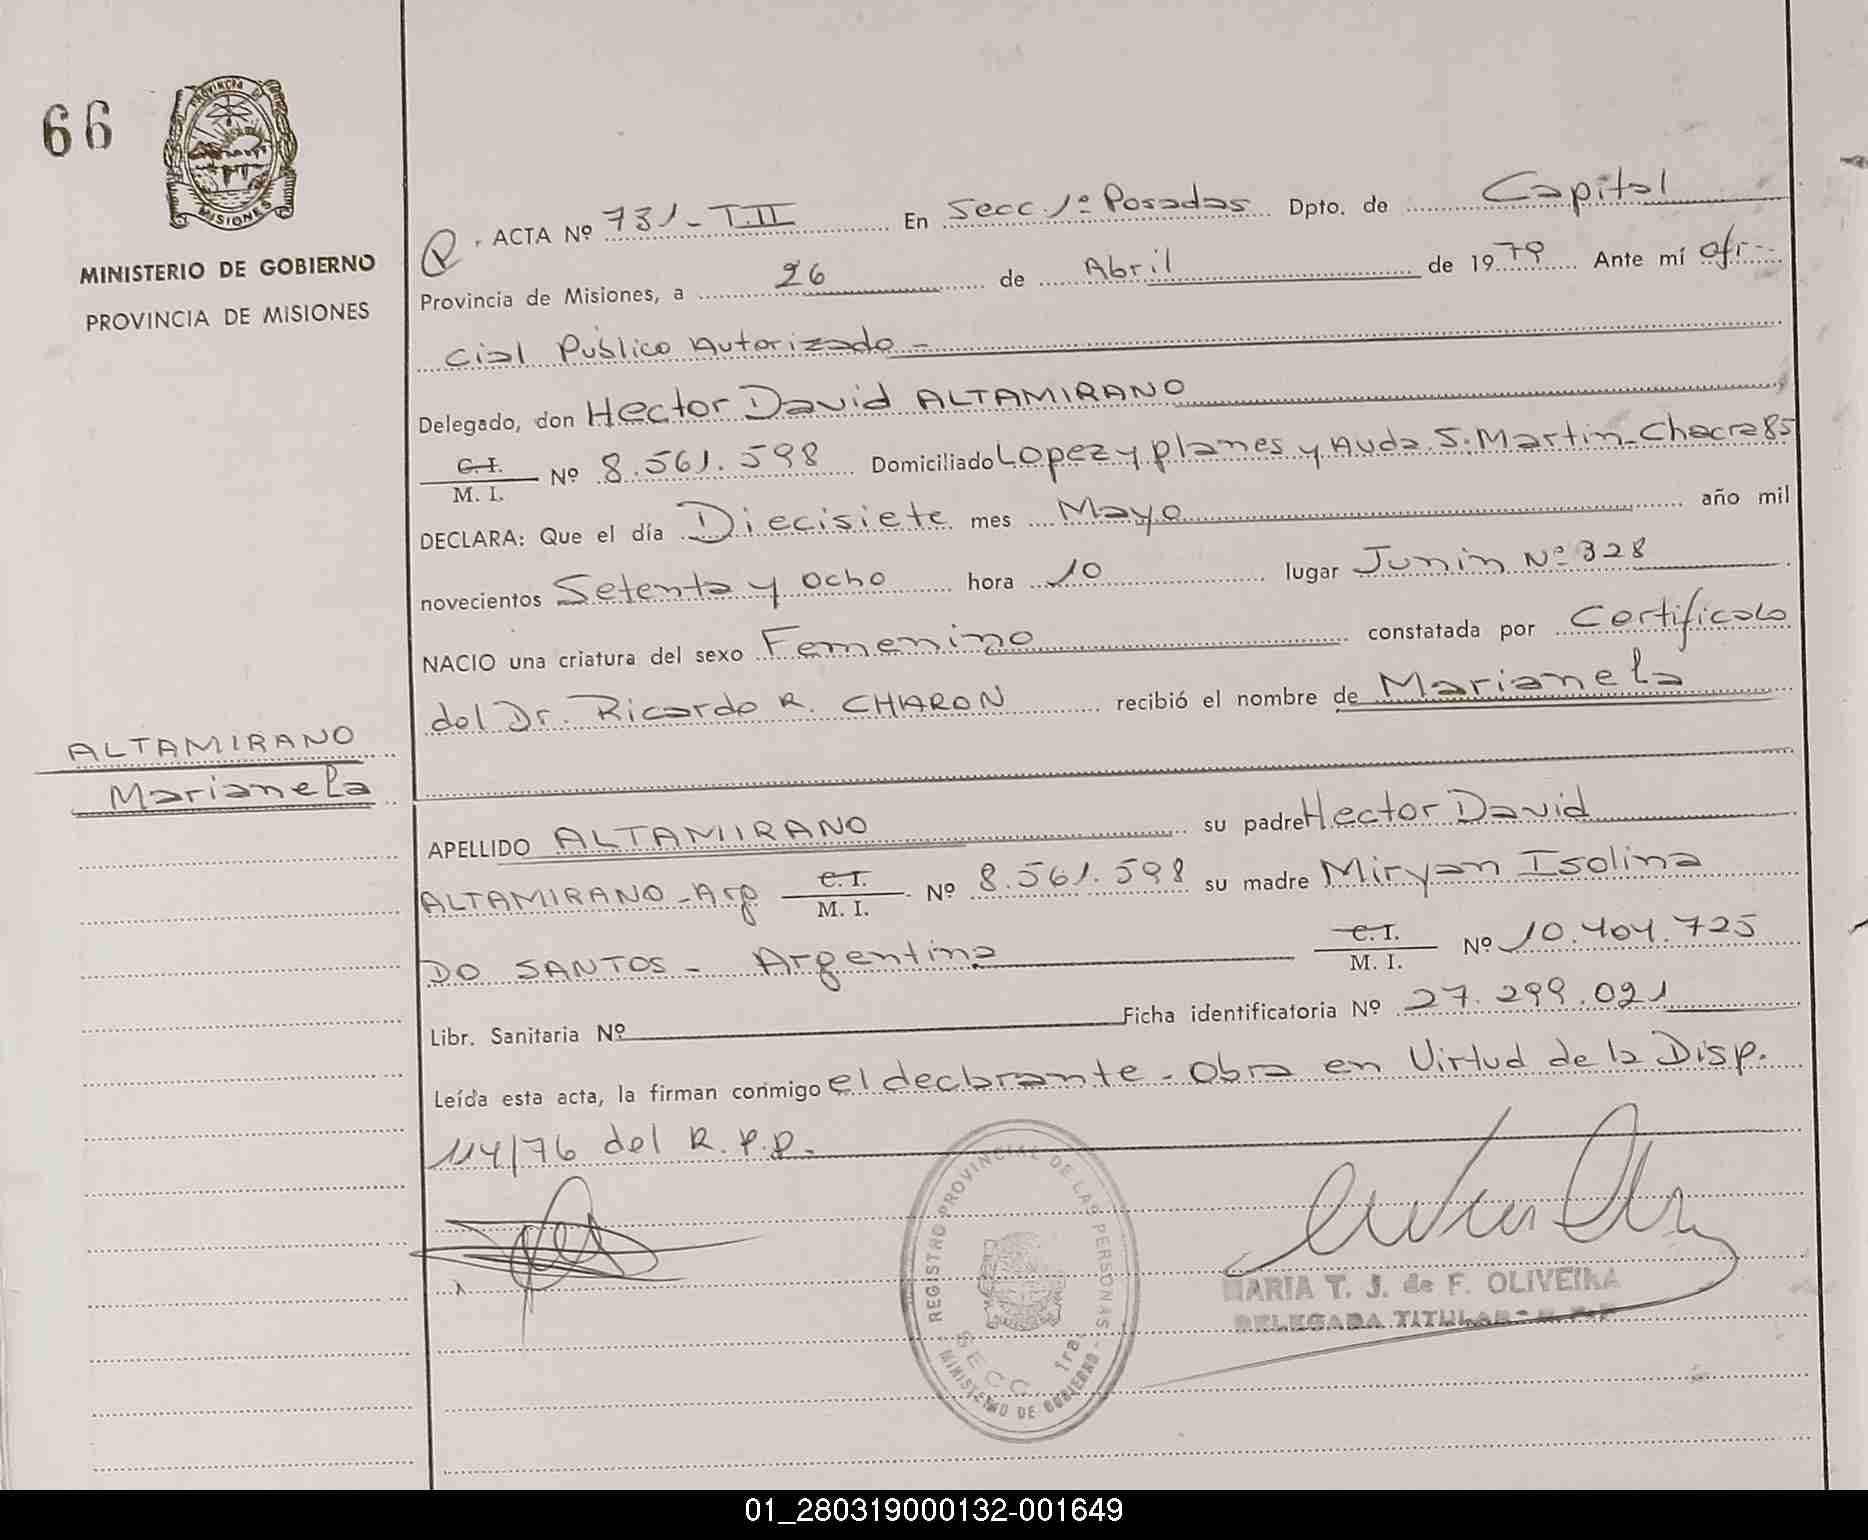 66
PROVINCIA DE
MISIONES
MINISTERIO DE GOBIERNO
PROVINCIA DE MISIONES
ALTAMIRANO
Marianela
ACTA Nº 731-T.II En Secc. 1º Posadas Dpto. de Capital
Provincia de Misiones, a 26 de Abril de 1979 Ante mí ofi-
cial Publico Autorizado -
Delegado, don Hector David ALTAMIRANO
C.I. / M. I. Nº 8.561.598 Domiciliado Lopez y planes y Avda. S. Martin-Chacra 85
DECLARA: Que el día Diecisiete mes Mayo año mil
novecientos Setenta y ocho hora 10 lugar Junin Nº 328
NACIO una criatura del sexo Femenino constatada por Certificado
del Dr. Ricardo R. CHARON recibió el nombre de Marianela
APELLIDO ALTAMIRANO su padre Hector David
ALTAMIRANO - Arg C.I. / M. I. Nº 8.561.598 su madre Miryan Isolina
DO SANTOS - Argentina C.I. / M. I. Nº 10.404.725
Libr. Sanitaria Nº Ficha identificatoria Nº 27.299.021
Leída esta acta, la firman conmigo el declarante - obra en Virtud de la Disp.
114/76 del R.P.P.
REGISTRO PROVINCIAL DE LAS PERSONAS
SECC 1ra
MINISTERIO DE GOBIERNO
MARIA T. J. de F. OLIVEIRA
DELEGADA TITULAR
01_280319000132-001649